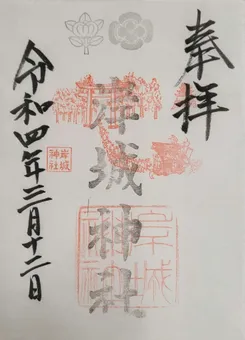 奉拝
岸城神社
岸城
神社
岸城神社
令和四年三月十二日